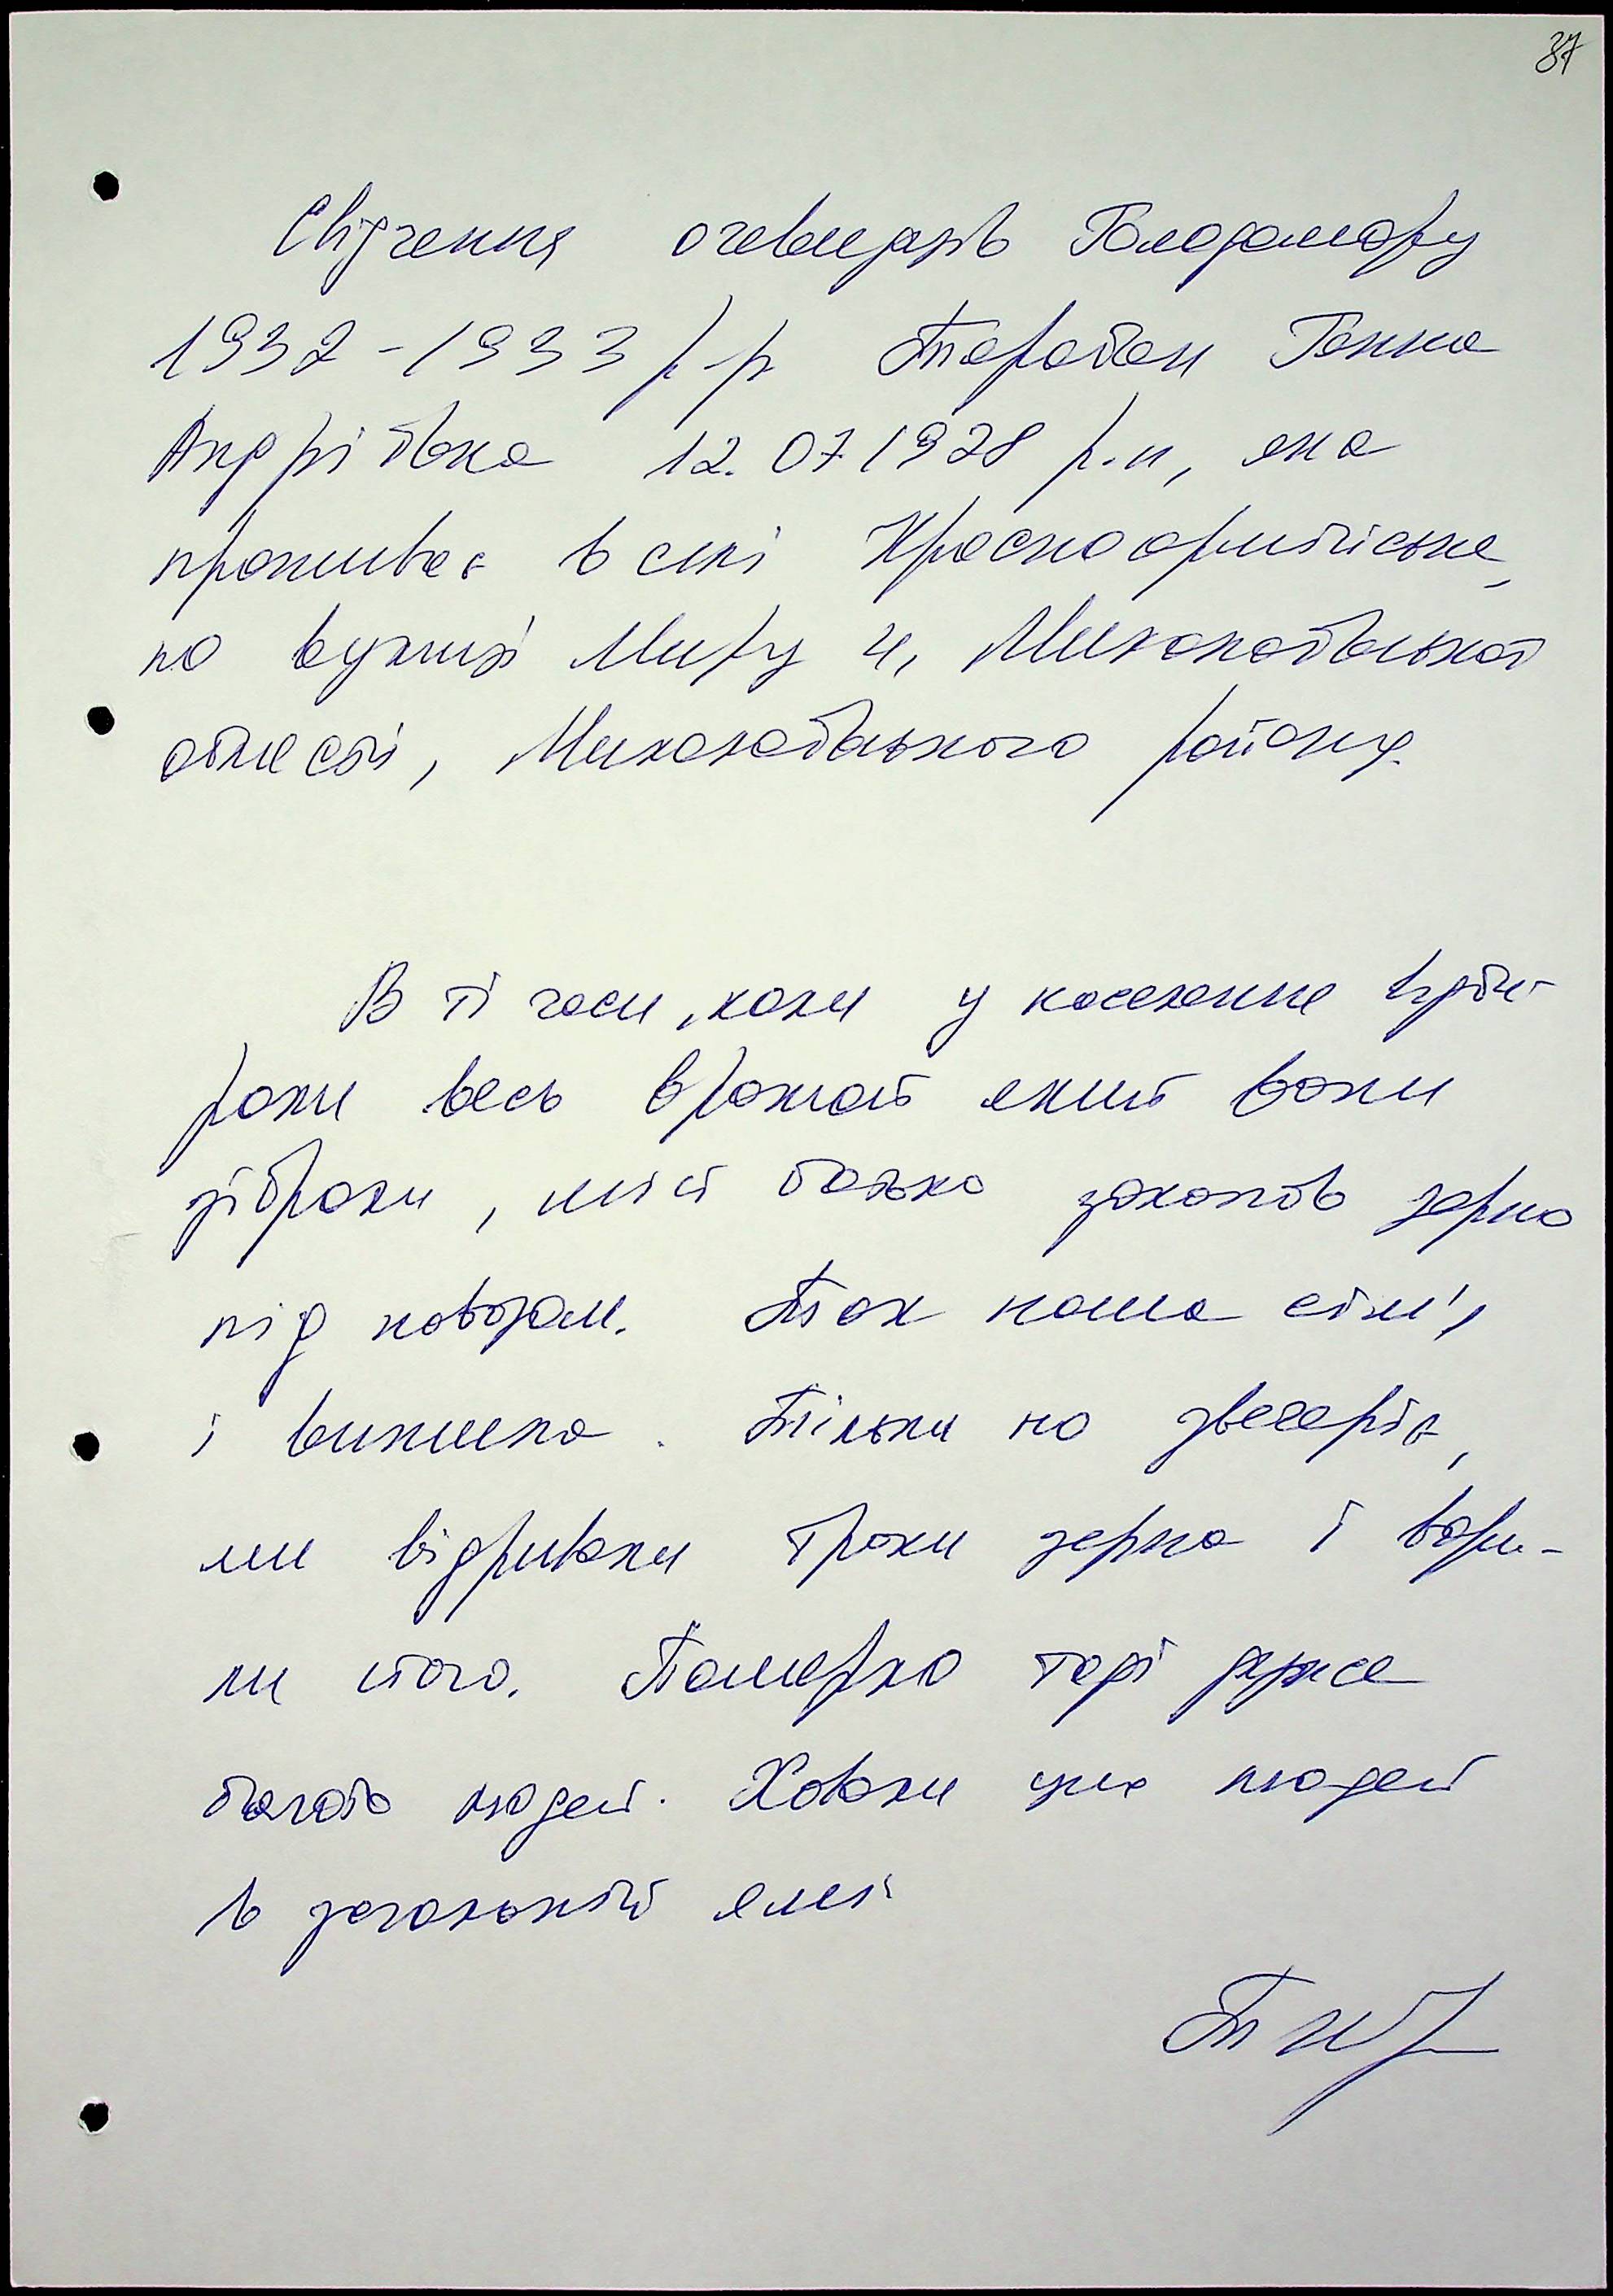 37
Свідчення очевидців Голодомору
1932-1933 р.р Тарабан Ганна
Андріївна 12.07.1928 р.н, яка
проживає в селі Красноармійське,
по вулиці Миру 4, Миколаївської
області, Миколаївського району.
В ті часи, коли у населення
весь врожай який вони
зібрали, мій батько закопав зерно
під навозом. Так наша сім'я
і вижила. Тільки но звечоріє,
ми відривали трохи зерна і вари-
ли його. Померло тоді дуже
багато людей. Ховали цих людей
в загальній ямі